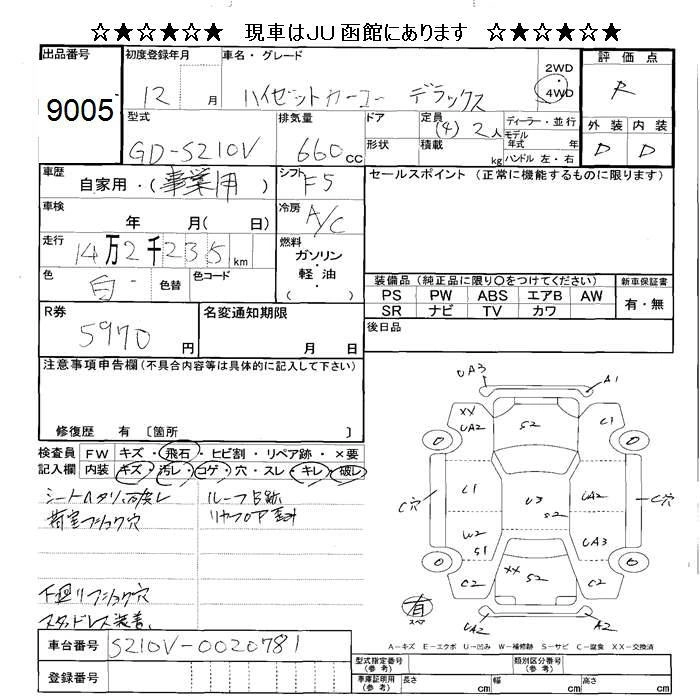 ☆★☆★☆★ 現車はJU函館にあります ☆★☆★☆★
出品番号 初度登録年月 車名・グレード 評価点
9005 12 月 ハイゼットカーゴ デラックス 2WD 4WD R
型式 排気量 ドア 定員 ディーラー・並行 外装 内装
GD-S210V 660cc (4) 2人 モデル年式 年 D D
形状 積載 kg ハンドル 左・右
車歴 自家用・(事業用) シフト F5 セールスポイント (正常に機能するものに限ります)
車検 年 月( 日) 冷房 A/C
走行 14万2千235km 燃料 ガソリン・軽油 ( )
色 白 色替 色コード 装備品 (純正品に限り〇をつけてください) 新車保証書
PS PW ABS エアB AW 有・無
SR ナビ TV カワ
R券 5970円 名変通知期限 月 日 後日品
注意事項申告欄 (不具合内容等は具体的に記入して下さい)
修復歴 有 〔箇所 〕
検査員 FW キズ・飛石・ヒビ割・リペア跡・×要
記入欄 内装 キズ・汚レ・コゲ・穴・スレ・キレ・破レ
シートヘタリ ルーフ
荷室フショク穴
下廻リフショク穴
スタッドレス装着
UA3 A1
XX UA2 S2 C1
C穴 C1 U3 S2 UA2 C穴
W2 S1 UA3
C2 XX S2 C2
有 スペア UA2 A2
A-キズ E-エクボ U-凹み W-補修跡 S-サビ C-腐食 XX-交換済
車台番号 S210V-0020781
登録番号
型式指定番号 (参考) 類別区分番号 (参考)
車庫証明用 (参考) 長さ cm 幅 cm 高さ cm